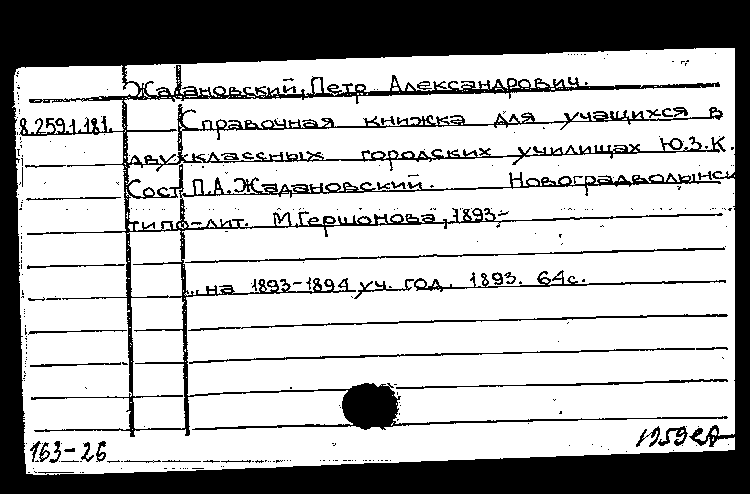 Жадановский, Петр Александрович.
8.259.1.181. Справочная книжка для учащихся в
двухклассных городских училищах Ю.З.К.
Сост. П.А. Жадановский. Новоградволынск
типо-лит. М. Гершонова, 1893-
... на 1893-1894 уч. год. 1893. 64с.
163-26